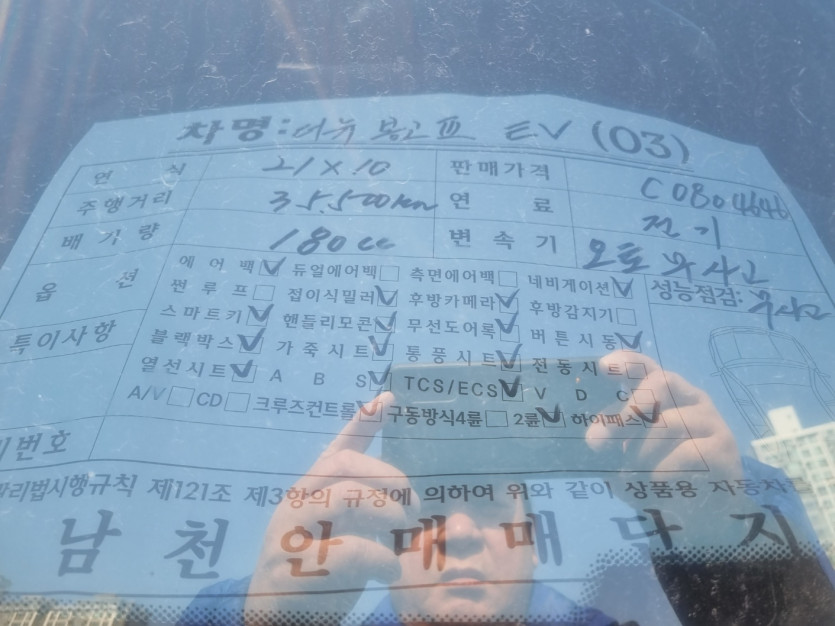 차명: 더뉴 봉고 Ⅲ EV (03)
연 식 21 X 10 판매가격
주행거리 35,500km 연 료 전기
배기량 180cc 변속기 오토 무사고
옵 션 에어백☑ 듀얼에어백☐ 측면에어백☐ 네비게이션☑ 성능점검: 무사고
썬루프☐ 접이식밀러☑ 후방카메라☑ 후방감지기☐
스마트키☑ 핸들리모콘☑ 무선도어록☑ 버튼시동☑
특이사항 블랙박스☑ 가죽시트☑ 통풍시트☑ 전동시트☐
열선시트☑ A B S☑ TCS/ECS☑ V D C☐
A/V☐ CD☐ 크루즈컨트롤☑ 구동방식4륜☐ 2륜☑ 하이패스☑
번호
관리법시행규칙 제121조 제3항의 규정에 의하여 위와 같이 상품용 자동차
남천안매매단지